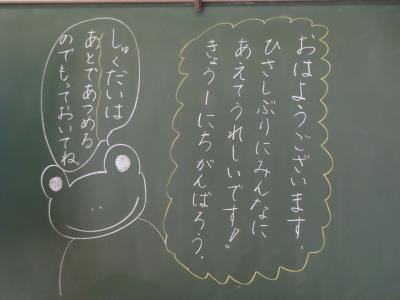 おはようございます。
ひさしぶりにみんなに
あえてうれしいです!!
きょう一にちがんばろう。
しゅくだいは
あとであつめる
のでもっておいてね。